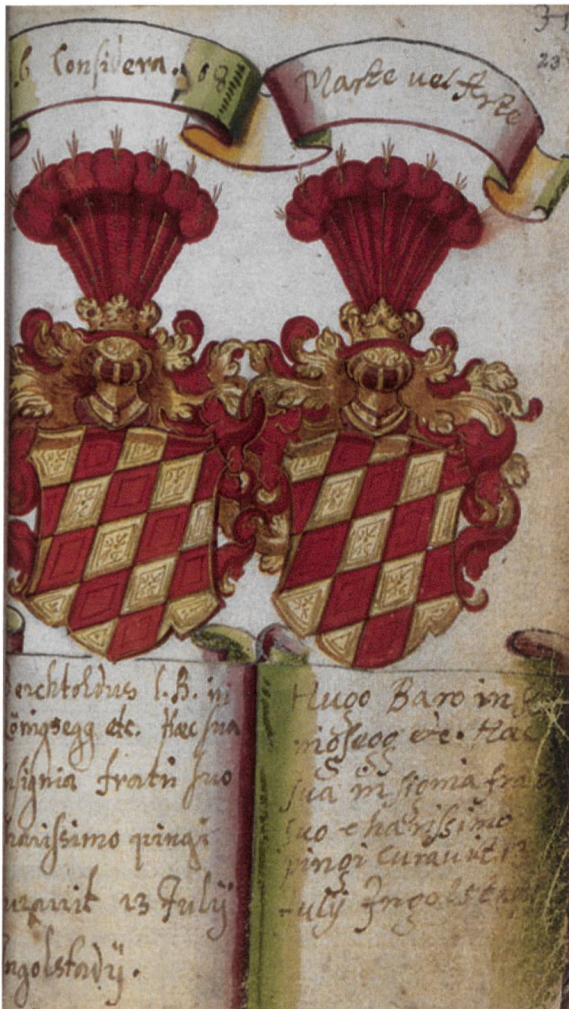 6 Considera. 08
Marte vel Arte
31
23
erchtoldus l. B. in
önigsegg etc. Hæc sua
nsignia fratri suo
harissimo pingi
uravit 13 Julij
ngolstadij.
Hugo Baro in
nigsegg etc. Hæc
sua insignia fra
suo charissimo
pingi curavit 13
ulij Ingolstad